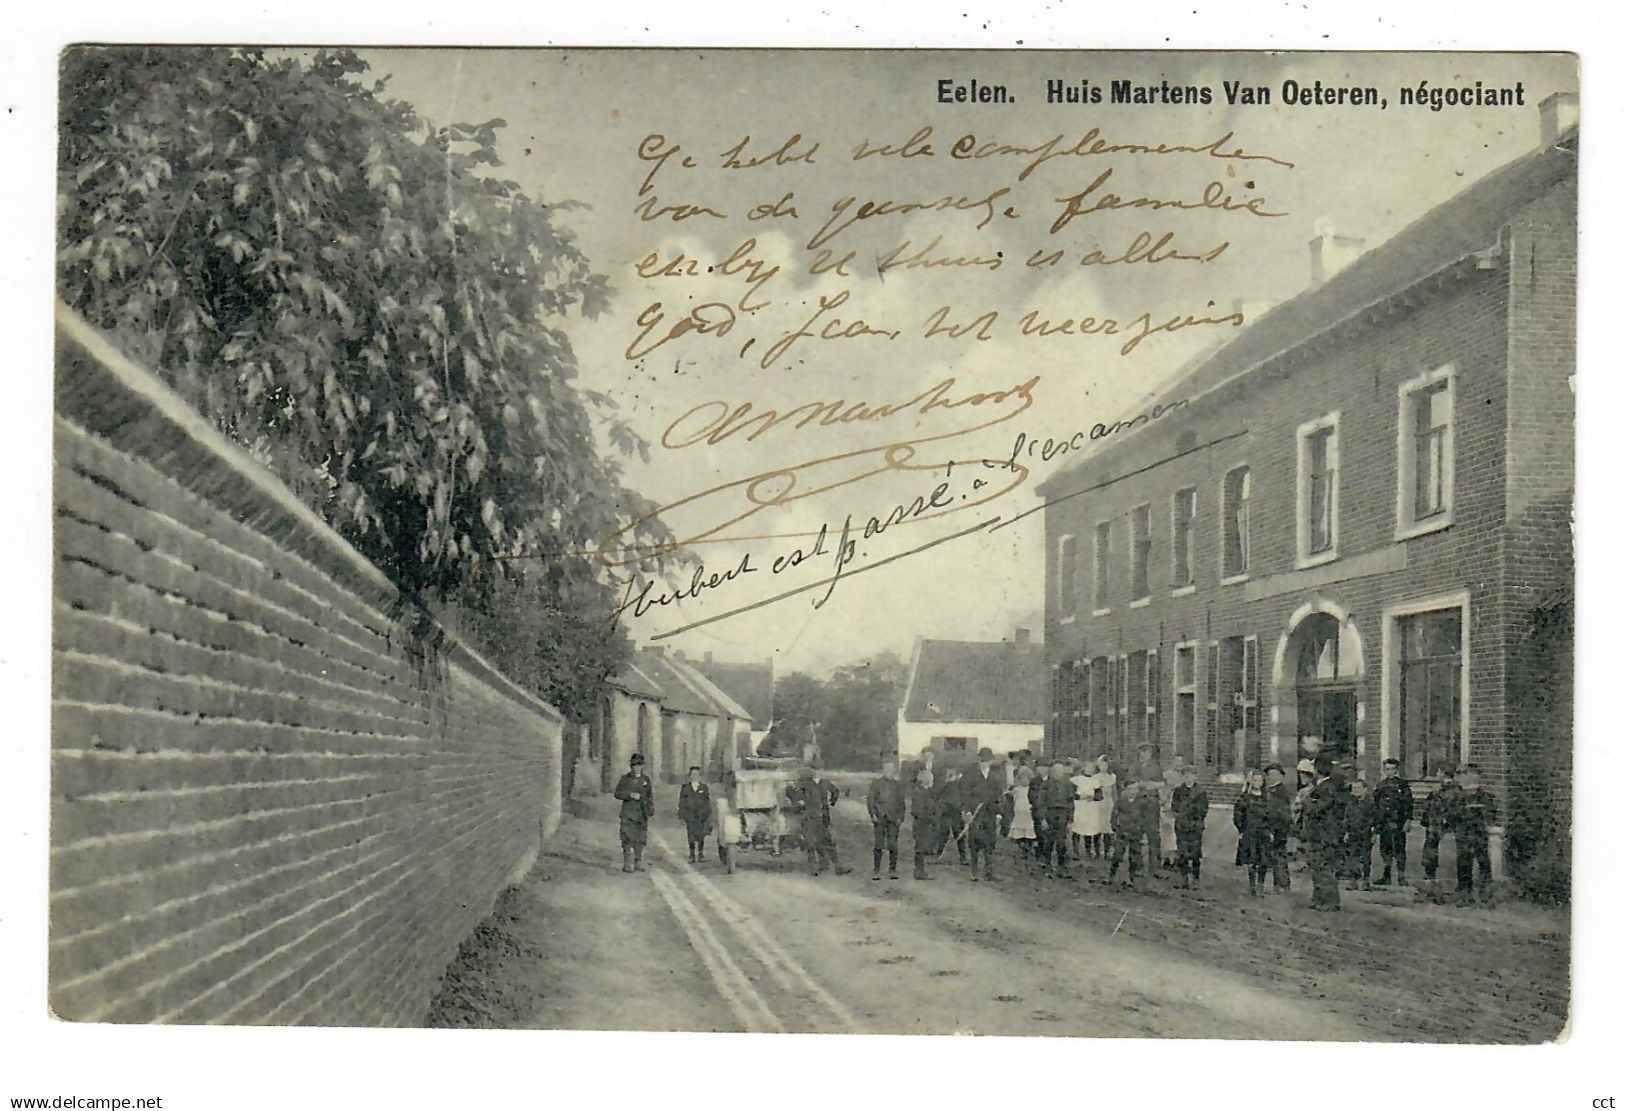 Eelen. Huis Martens Van Oeteren, négociant
Ge hebt vele complementen
van de gansche familie
en by u thuis is alles
goed, Jean, tot weerziens
Martens
Hubert est passé à l'examen
www.delcampe.net
cct